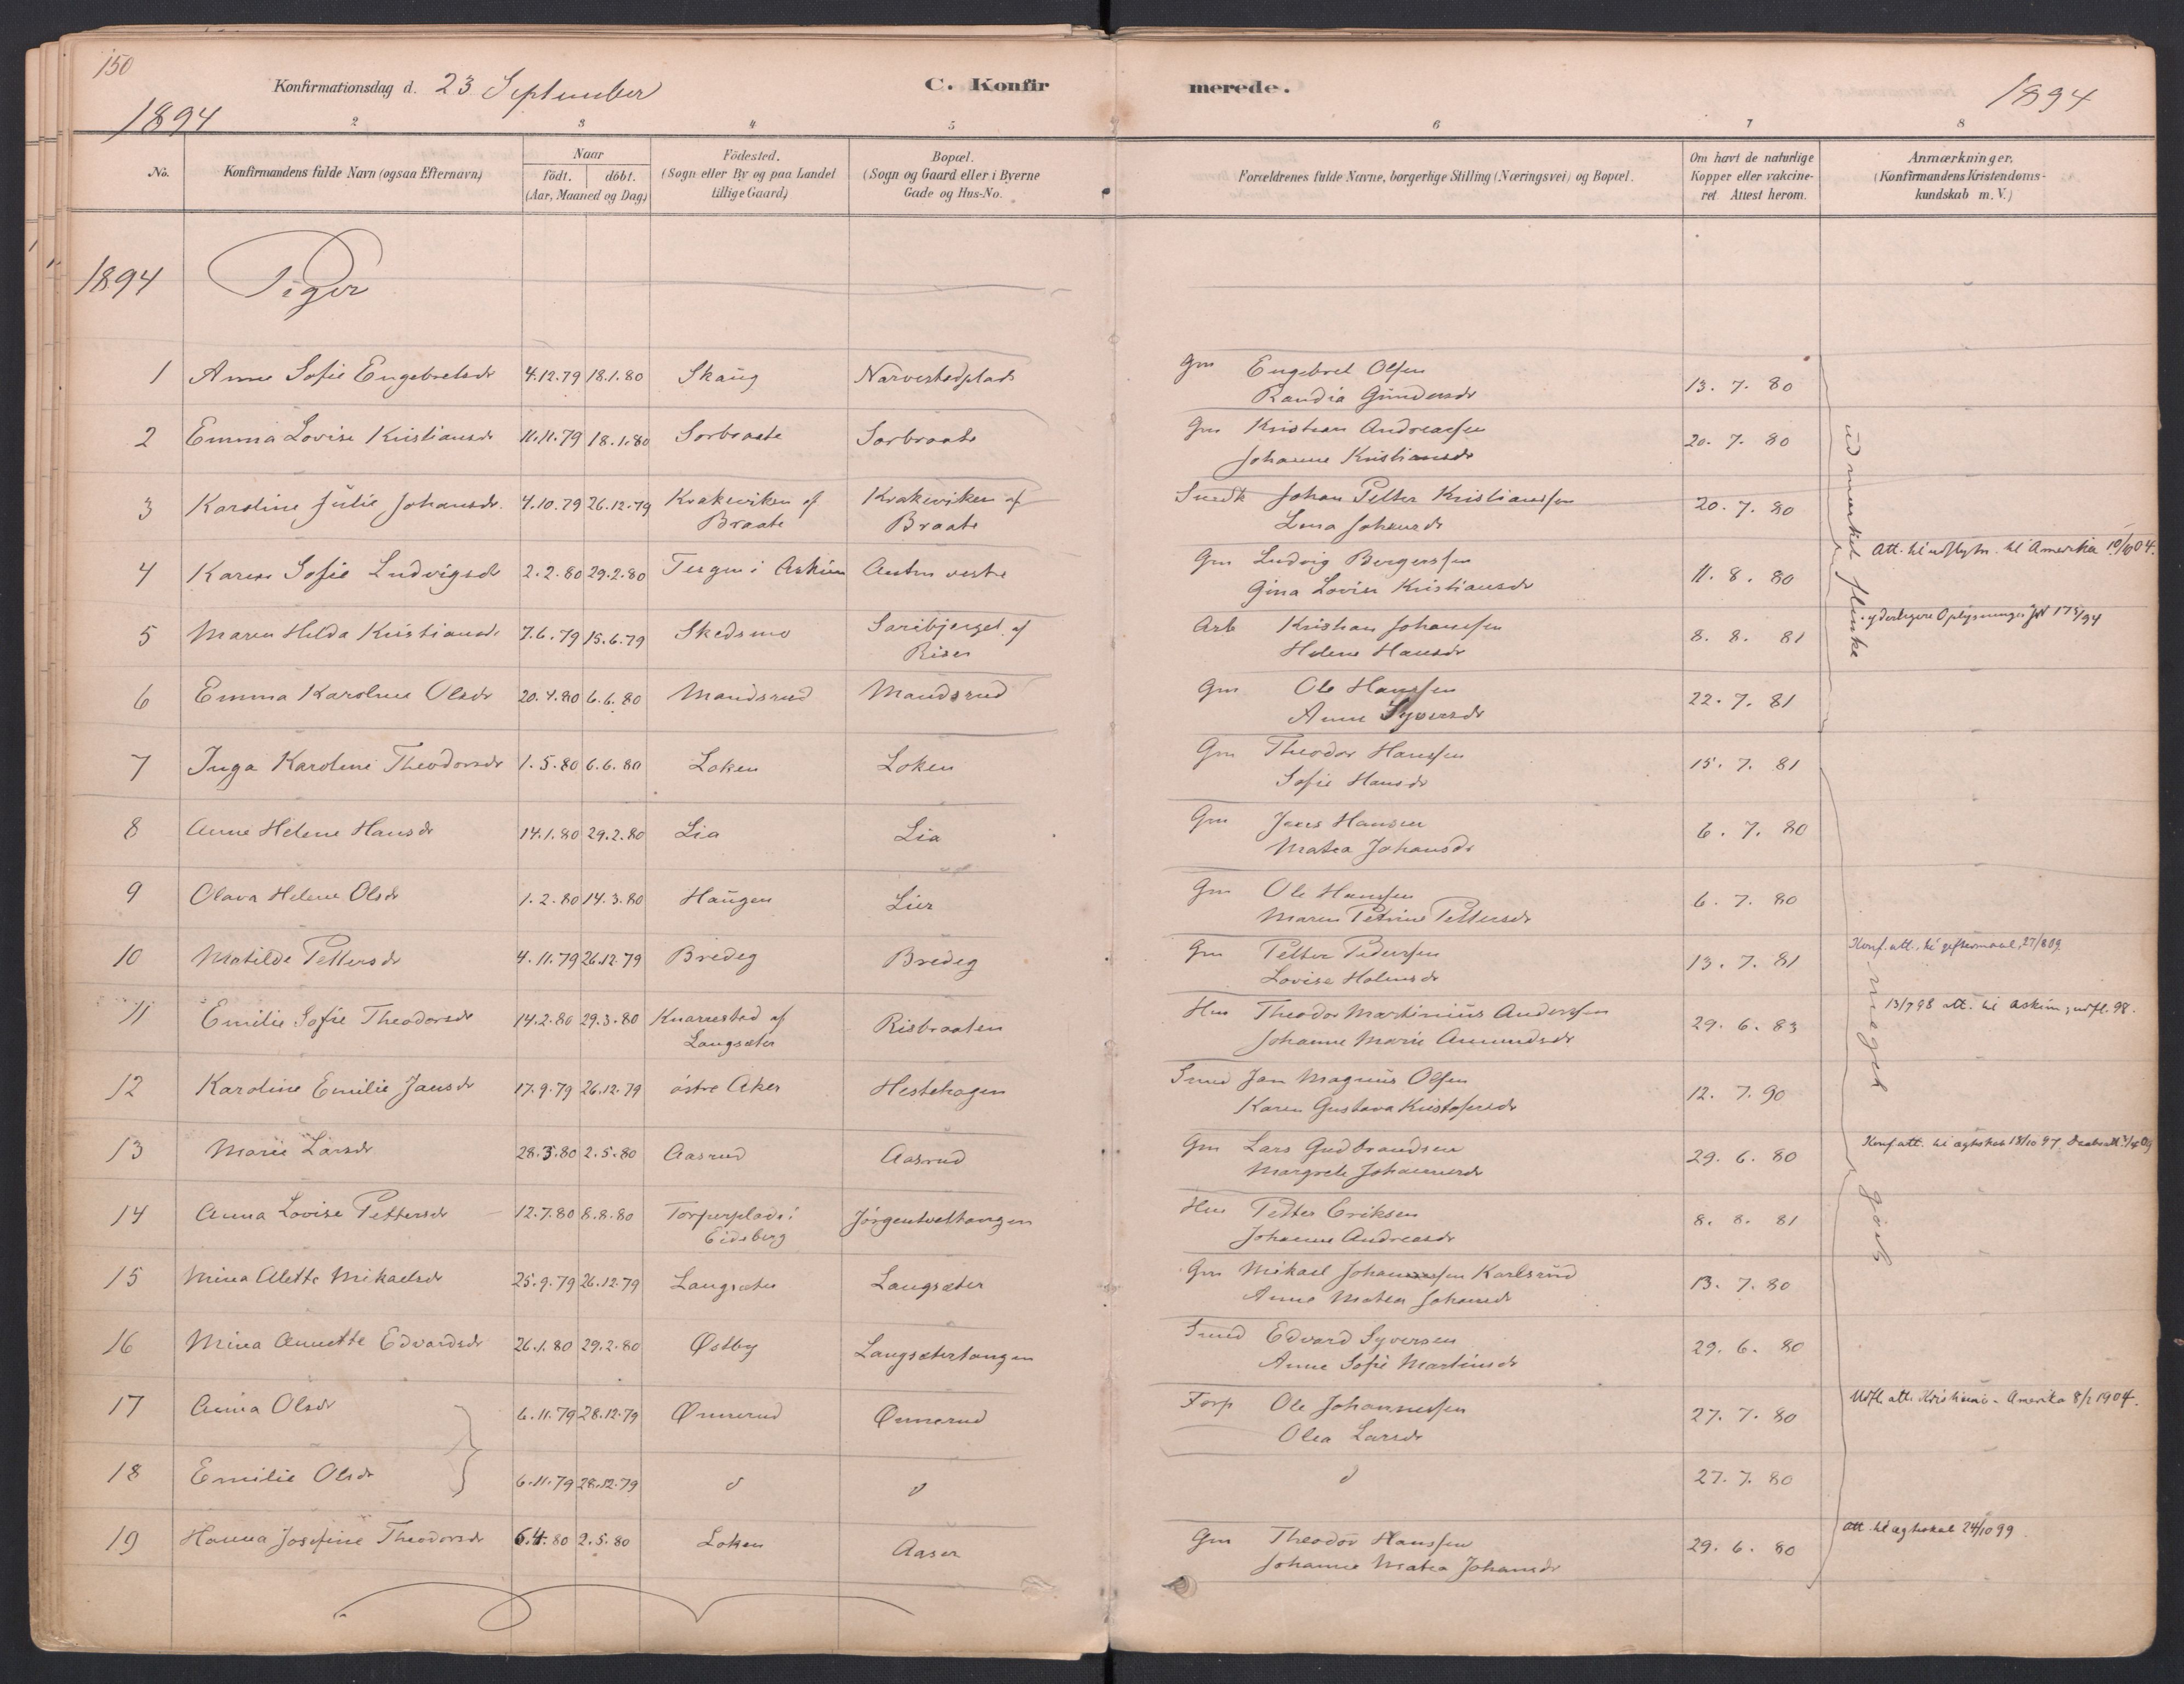 150
Konfirmationsdag d. 23 September
C. Konfirmerede.
1894
1894
2 3 4 5 6 7 8
No.
Konfirmandens fulde Navn (ogsaa Efternavn)
Naar
født. døbt.
(Aar, Maaned og Dag)
Fødested.
(Sogn eller By og paa Landet
tillige Gaard)
Bopæl.
(Sogn og Gaard eller i Byerne
Gade og Hus-No.
Forældrenes fulde Navne, borgerlige Stilling (Næringsvei) og Bopæl.
Om havt de naturlige
Kopper eller vakcine-
ret Attest herom.
Anmærkninger.
(Konfirmandens Kristendoms-
kundskab m. V.)
1894 Piger
1 Anne Sofie Engebretsdr 4.12.79 18.1.80 Skaug Narvestadplads Gm Engebret Olsen 13. 7. 80
Randia Gundersdr
2 Emma Lovise Kristiansdr 11.11.79 18.1.80 Sorbraate Sorbraate Gm Kristian Andreasen 20. 7. 80
Johanne Kristiansdr
3 Karoline Julie Johansdr. 4.10.79 26.12.79 Krakeviken af Krakeviken af Snedk Johan Petter Kristiansen 20. 7. 80
Braate Braate Lena Johansdr
4 Karen Sofie Ludvigsdr 2.2.80 29.2.80 i Askim vestre Gm Ludvig Bergersen 11. 8. 80 Att. til udflytn. til Amerika 10/6 04.
Gina Lovise Kristiansdr
5 Maren Hilda Kristiansdr 7.6.79 15.6.79 Skedsmo Saribjerget af Arb Kristian Johansen 8. 8. 81 yderligere Oplysninger
Riser Helene Hansdr
6 Emma Karoline Olsdr 20.4.80 6.6.80 Mandsrud Mandsrud Gm Ole Hansen 22. 7. 81
Anne Syversdr
7 Inga Karoline Theodorsdr 1.5.80 6.6.80 Loken Loken Gm Theodor Hansen 15. 7. 81
Sofie Hansdr
8 Anne Helene Hansdr 14.1.80 29.2.80 Lia Lia Gm Jens Hansen 6. 7. 80
Matea Johansdr
9 Olava Helene Olsdr 1.2.80 14.3.80 Haugen Lier Gm Ole Hansen 6. 7. 80
Maren Petrine Pettersdr
10 Matilde Pettersdr 4.11.79 26.12.79 Bredeg Bredeg Gm Petter Pedersen 13. 7. 81 Konf.att. til giftermaal 27/8 09
Lovise Holmsdr
11 Emilie Sofie Theodorsdr 14.2.80 29.3.80 Knarrestad af Risbraaten Hm Theodor Martinius Andersen 29. 6. 83 13/7 98 att. til Askim, udfl. 98.
Langsæter Johanne Marie Amundsdr
12 Karoline Emilie Jansdr 17.9.79 26.12.79 østre Aker Hestehagen Smed Jan Magnus Olsen 12. 7. 90
Karen Gustava Kristofersdr
13 Marie Larsdr 28.3.80 2.5.80 Aasrud Aasrud Gm Lars Gudbrandsen 29. 6. 80 Konf.att. til ægteskab 18/10 97
Margrete Johannesdr
14 Anna Lovise Pettersdr 12.7.80 8.8.80 Torperplads i Jørgentvettangen Hm Petter Eriksen 8. 8. 81
Eidsberg Johanne Andreasdr
15 Mina Alette Mikaelsdr 25.9.79 26.12.79 Langsæter Langsæter Gm Mikael Johannessen Karlsrud 13. 7. 80
Anne Matea Johansdr
16 Mina Annette Edvardsdr 26.1.80 29.2.80 Østby Langsætertangen Smed Edvard Syversen 29. 6. 80
Anne Sofie Martinsdr
17 Anna Olsdr 6.11.79 28.12.79 Ønnerud Ønnerud Forp Ole Johannessen 27. 7. 80 Udfl. att. Kristiania - Amerika 8/2 1904.
Olea Larsdr
18 Emilie Olsdr 6.11.79 28.12.79 d d d 27. 7. 80
19 Hanna Josefine Theodorsdr 6.4.80 2.5.80 Loken Aaser Gm Theodor Hansen 29. 6. 80 att til ægteskab 24/10 99
Johanne Matea Johansdr
udmærket flinke
meget gode